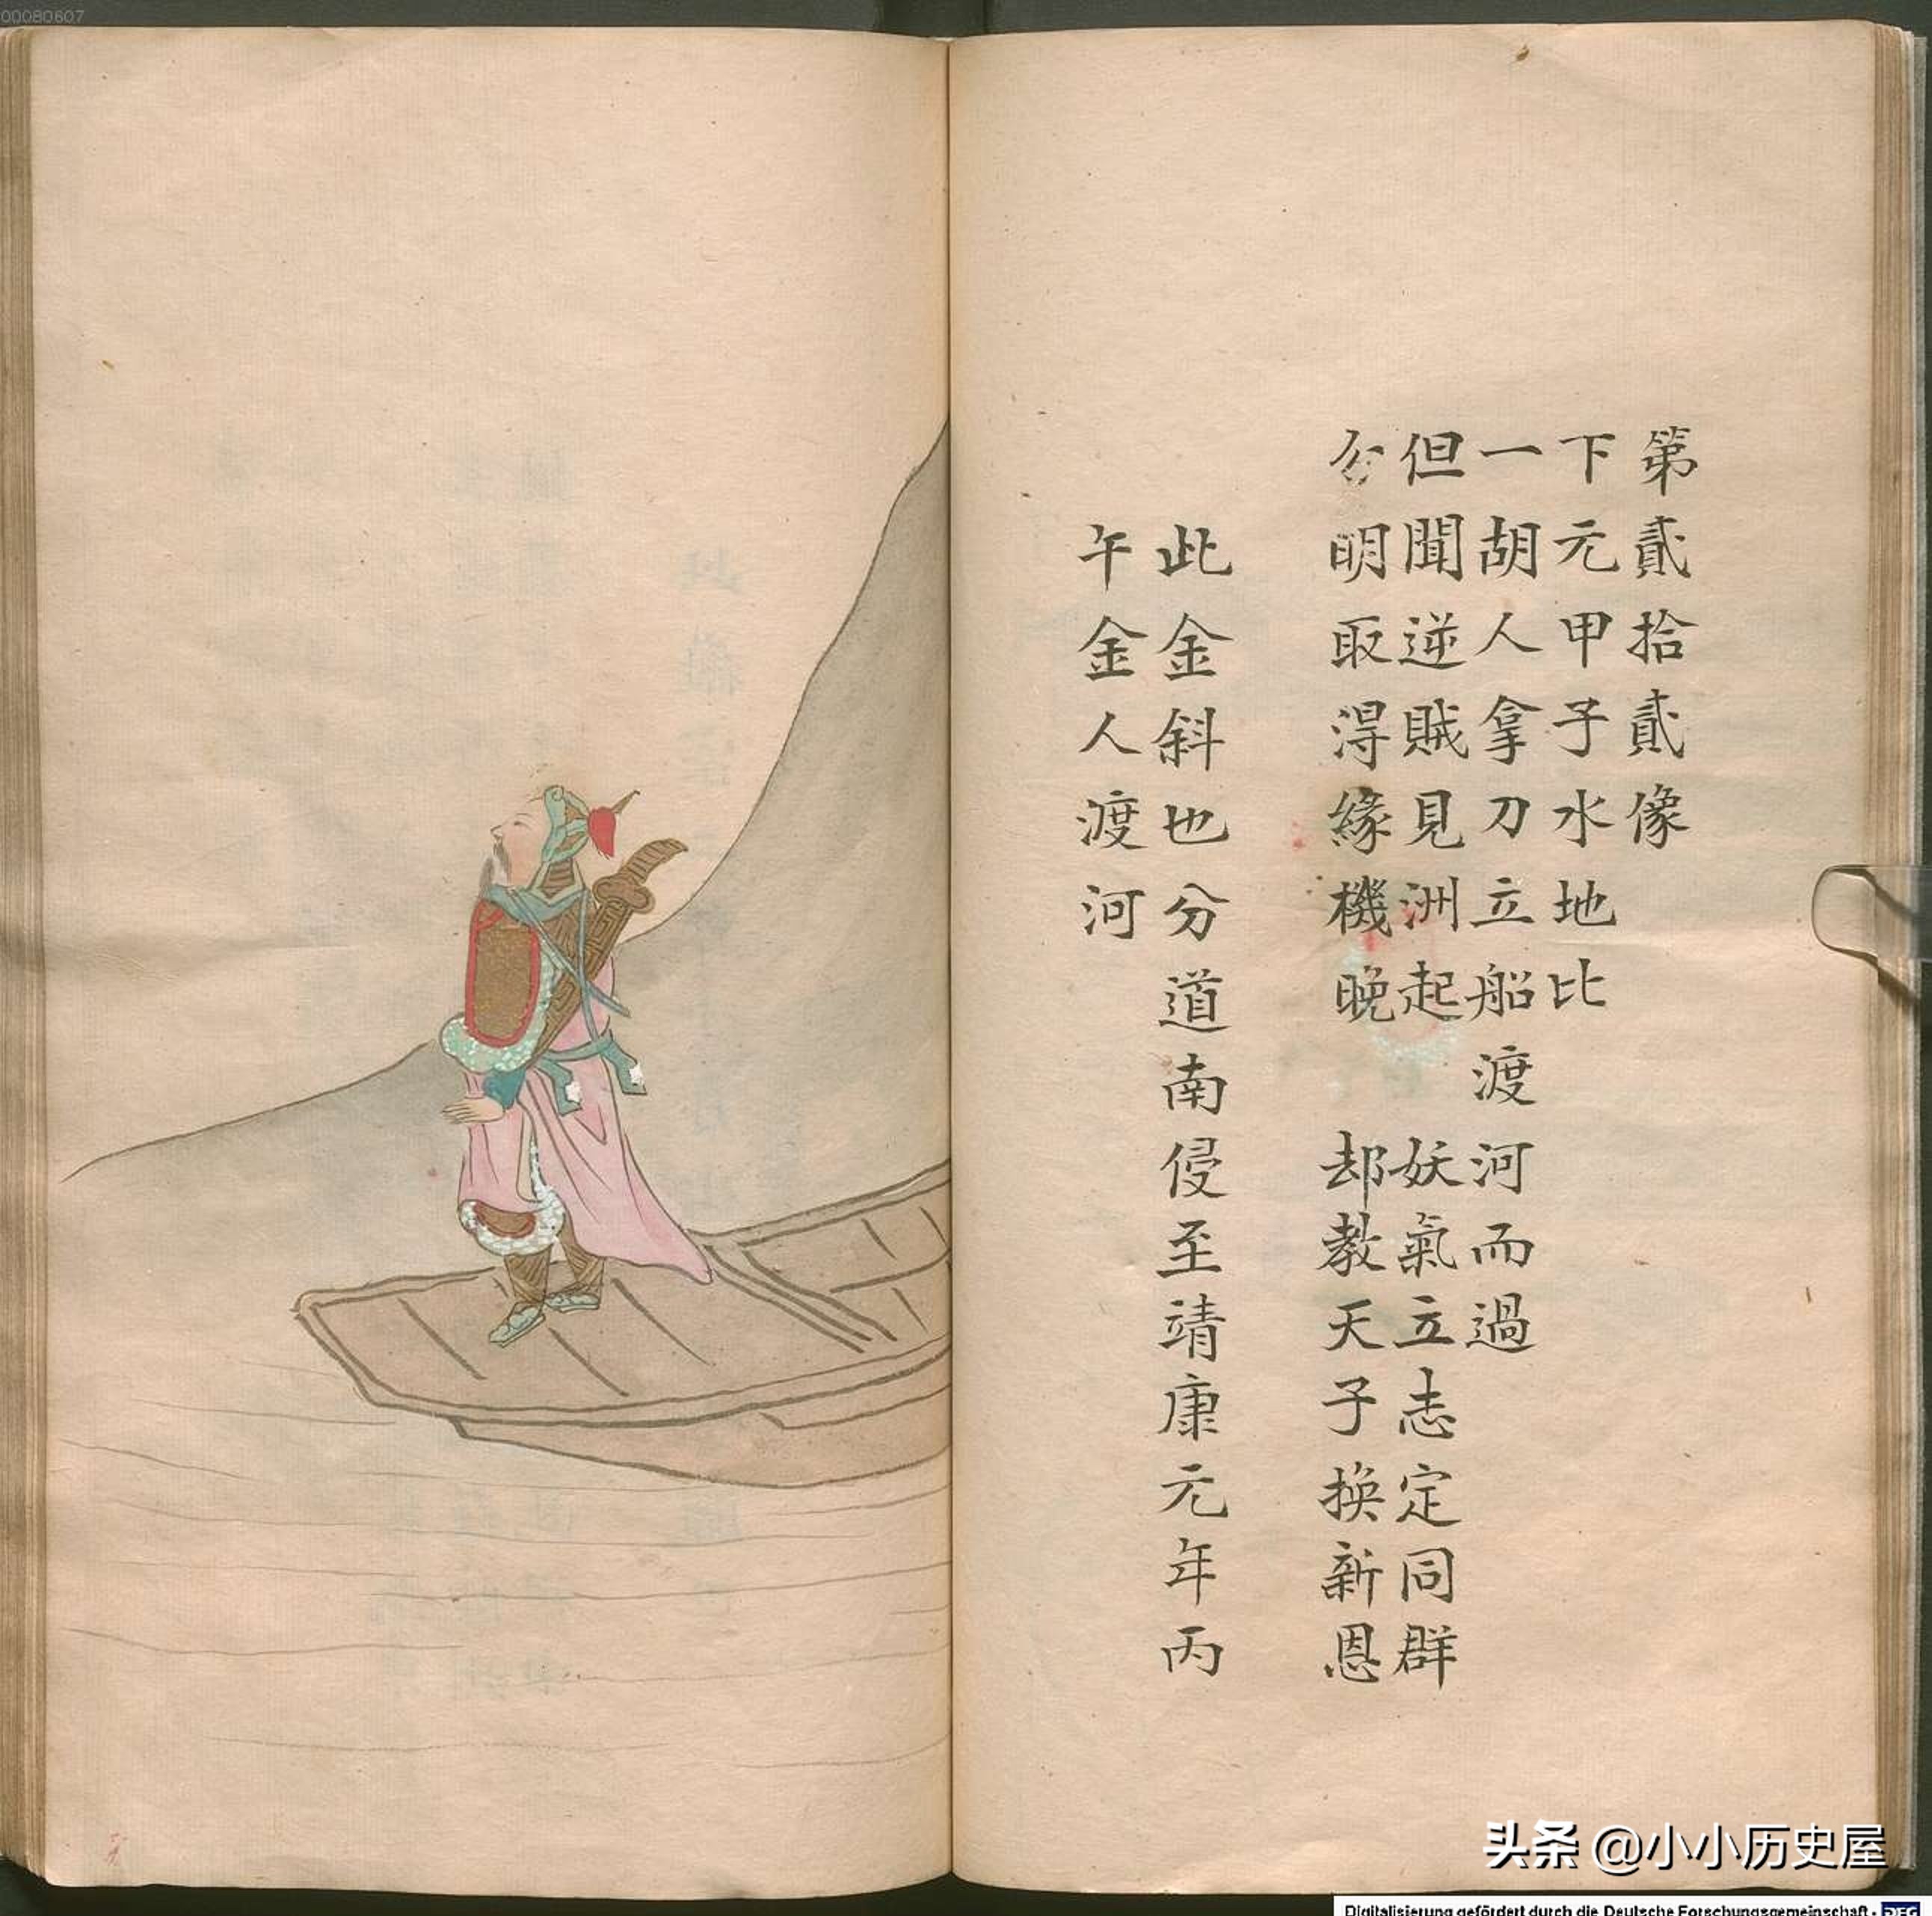 00080607
第貳拾貳像
下元甲子水地比
一胡人拿刀立船渡河而過
但聞逆賊見洲起 妖氣立志定同群
分明取得緣機晚 却教天子換新恩
此金斜也分道南侵至靖康元年丙
午金人渡河
头条 @小小历史屋
Digitalisierung gefördert durch die Deutsche Forschungsgemeinschaft - DFG